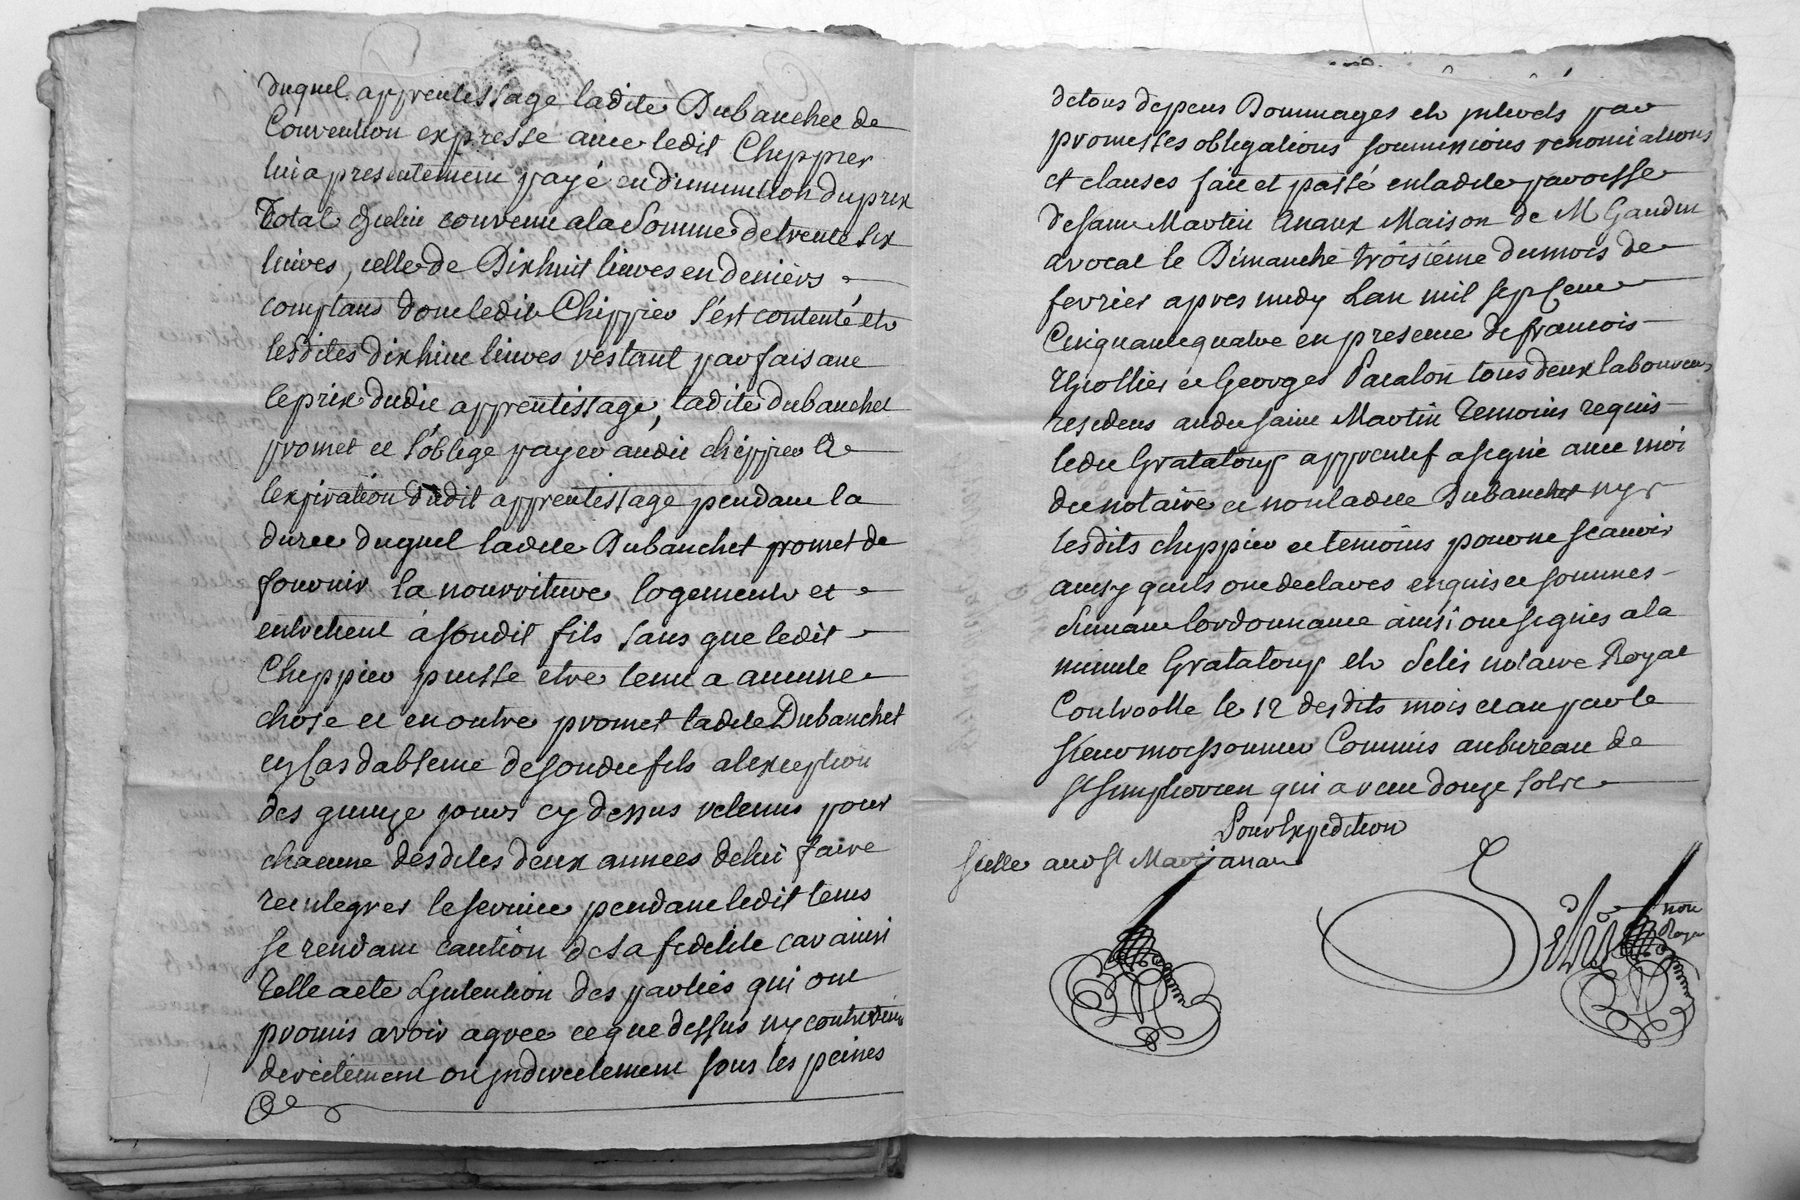 duquel apprentissage ladite Dubanchet de
Convention expresse avec ledit Cheppier
luÿ a presentement payé en diminution du prix
Total Quelin convenu a la Somme de trente six
livres, celle de Dixhuit livres en deniers
comptans dont ledit Chippier s'est contenté et
lesdites dixhuit livres restant parfaisant
le prix dudit apprentissage, ladite dubanchet
promet et s'oblige payer audit chippier a
lexpiration dudit apprentissage pendant la
duree duquel ladite Dubanchet promet de
fournir la nourriture logement et
entretient à sondit fils sans que ledit
Cheppier puisse etre tenu a aucune
chose et en outre promet ladite Dubanchet
en Cas dabsence de sondit fils alexception
des quinze jours cy dessus retenus pour
chacune desdites deux annees de lui faire
reintegrer le service pendant ledit tems
se rendant caution de sa fidelité car ainsi
Telle a eté Lintention des parties qui ont
promis avoir agreé ce que dessus ny contrevenir
directement ou indirectement sous les peines
de tous depens Dommages et interets par
promesses obligations soumissions renonciations
et clauses fait et passé en ladite paroisse
de saint Martin Anaux Maison de M Gaudin
avocat le Dimanche troisiéme du mois de
fevrier apres midy Lan mil sept Cent
Cinquante quatre en presence de francois
Thiollier et Georges Pacalon tous deux laboureurs
residens audit saint Martin Temoins requis
ledit Grataloup apprentif a signé avec moi
dit notaire et non ladite Dubanchet ny
lesdits cheppier et temoins pour ne scavoir
ainsy quils ont declarés enquis et sommes
suivant lordonnance ainsi ont signés a la
minute Grataloup et Delis notaire Royal
Controolle le 12 desdits mois et an par le
sieur moissonnier Commis au bureau de
St Simphorien qui a receu douze sols
Pour Expedition
scelle aud St Mart anau
not
Royal